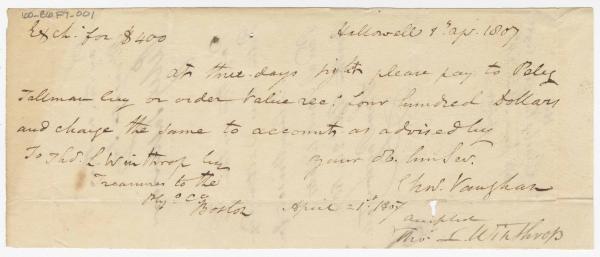 100-B16F9-001
Exch. for $400 Hallowell 9 apr. 1807
At three days sight please pay to Peleg
Tallman Esq or order Value rec.d four hundred Dollars
and charge the same to account as advised by
To Tho.s L Winthrop Esq your ob. hm Ser.
Treasurer to the Cha.s Vaughan
Ply.o Co
Boston April 21st 1807
accepted
Tho.s L Winthrop